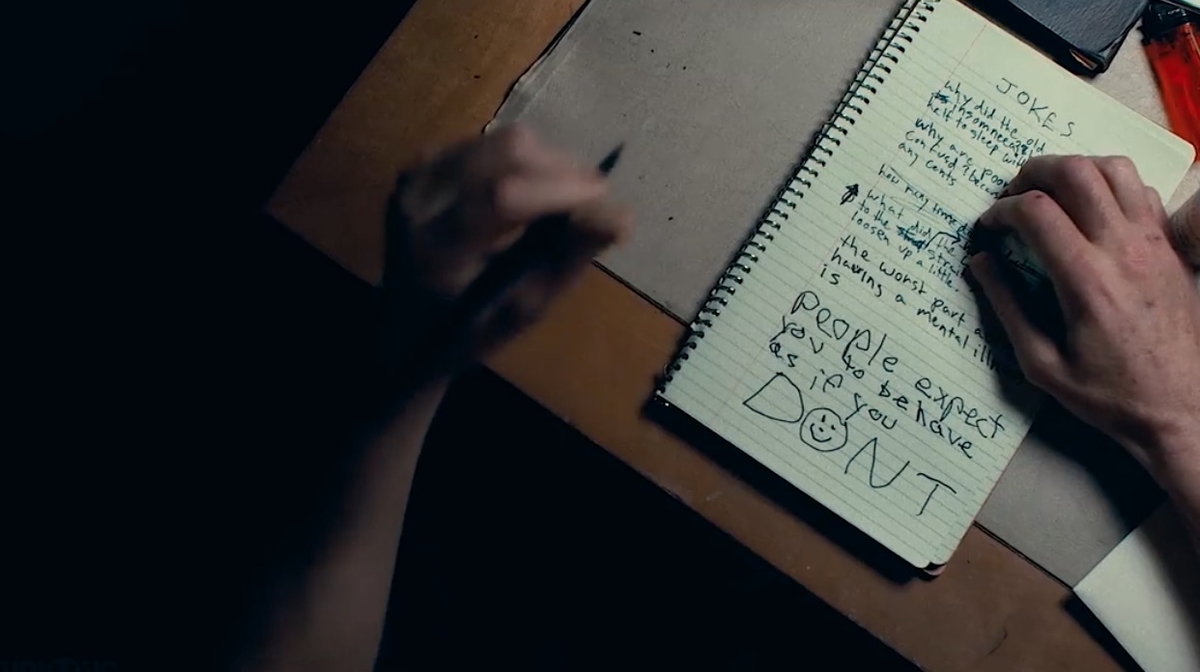 JOKES
why did the old
insomneeac
help to sleep with
why are poor
confused? becau
any cents
how many time
what did the
to the stra
loosen up a little.
the worst part a
having a mental ill
is
people expect
you to behave
as if you
DONT